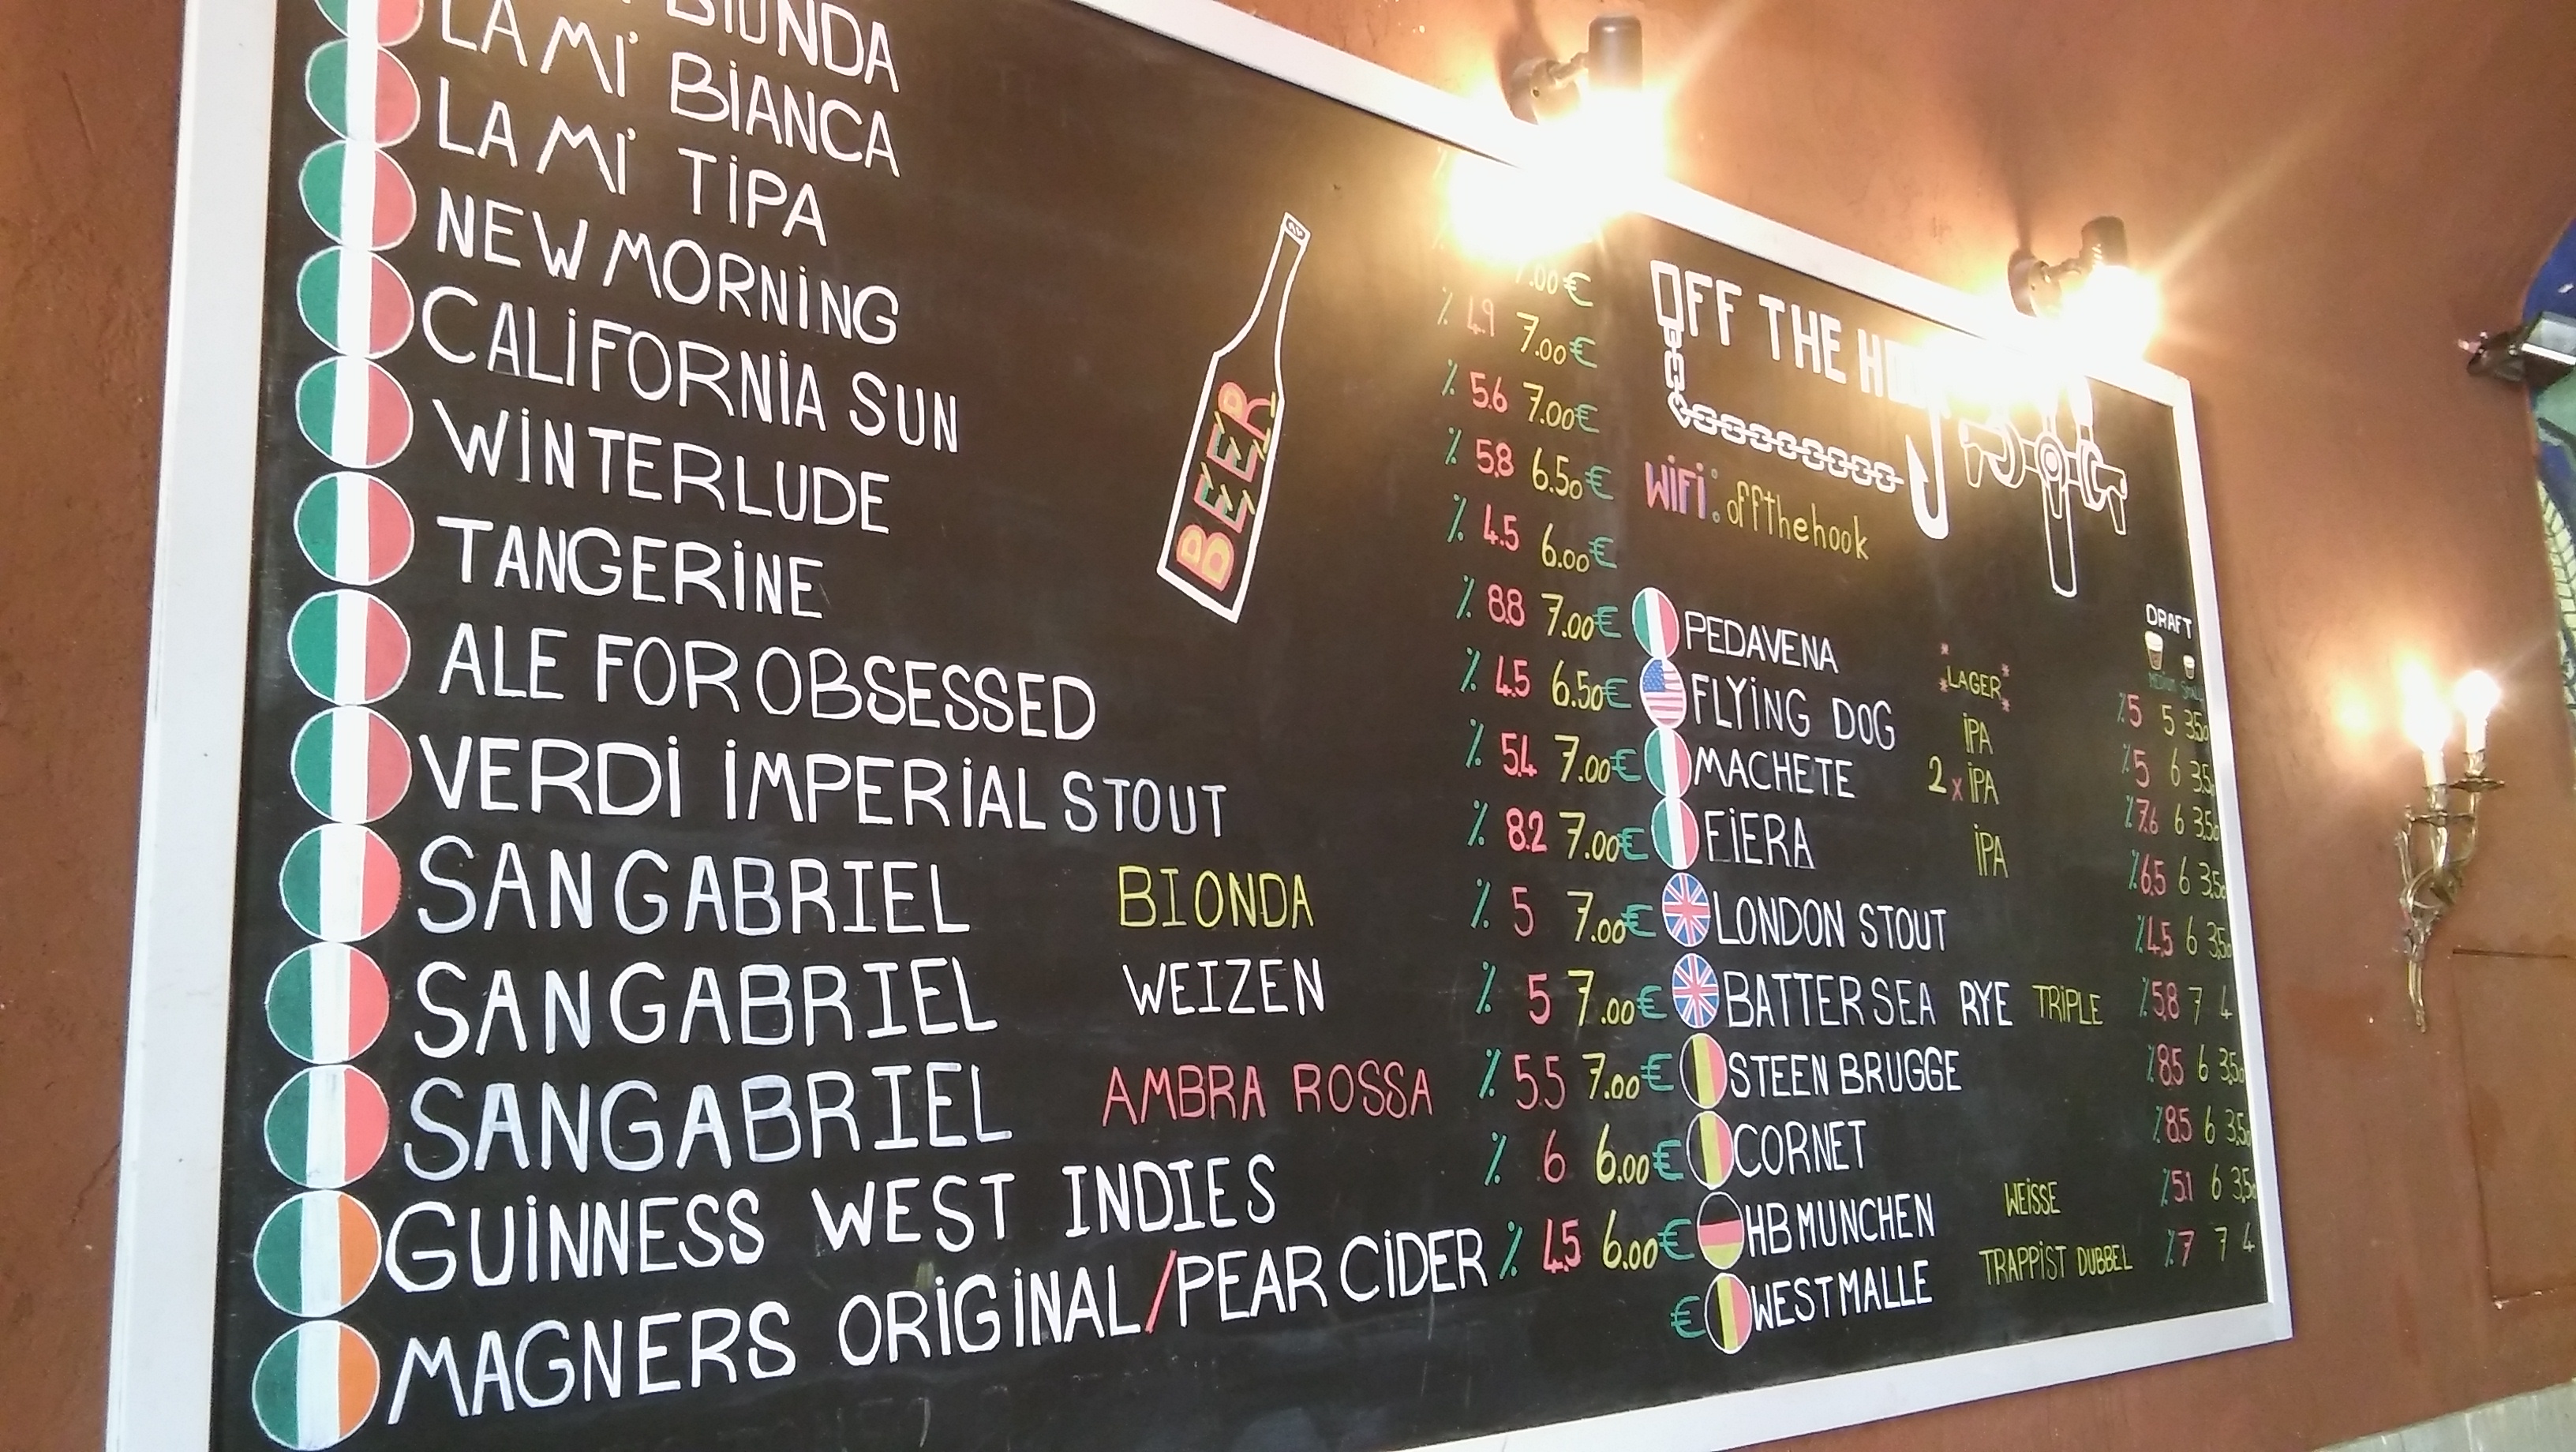 BIONDA 7.00€
LA MI' BIANCA % 4.9 7.00€
LA MI' TIPA % 5.6 7.00€
NEW MORNING % 5.8 6.50€
CALIFORNIA SUN % 4.5 6.00€
WINTERLUDE % 8.8 7.00€
TANGERINE % 4.5 6.50€
ALE FOR OBSESSED % 5.4 7.00€
VERDI IMPERIAL STOUT % 8.2 7.00€
SANGABRIEL BIONDA % 5 7.00€
SANGABRIEL WEIZEN % 5 7.00€
SANGABRIEL AMBRA ROSSA % 5.5 7.00€
GUINNESS WEST INDIES % 6 6.00€
MAGNERS ORIGINAL/PEAR CIDER % 4.5 6.00€
€
BEER
OFF THE
WIFI: offthehook
DRAFT
PEDAVENA *LAGER* % 5 5 3.50
FLYING DOG IPA % 5 6 3.50
MACHETE 2 x IPA % 7.6 6 3.50
FIERA IPA % 6.5 6 3.50
LONDON STOUT % 4.5 6 3.50
BATTERSEA RYE TRIPLE % 5.8 7 4
STEEN BRUGGE % 8.5 6 3.50
CORNET % 8.5 6 3.50
HB MUNCHEN WEISSE % 5.1 6 3.50
WESTMALLE TRAPPIST DUBBEL % 7 7 4